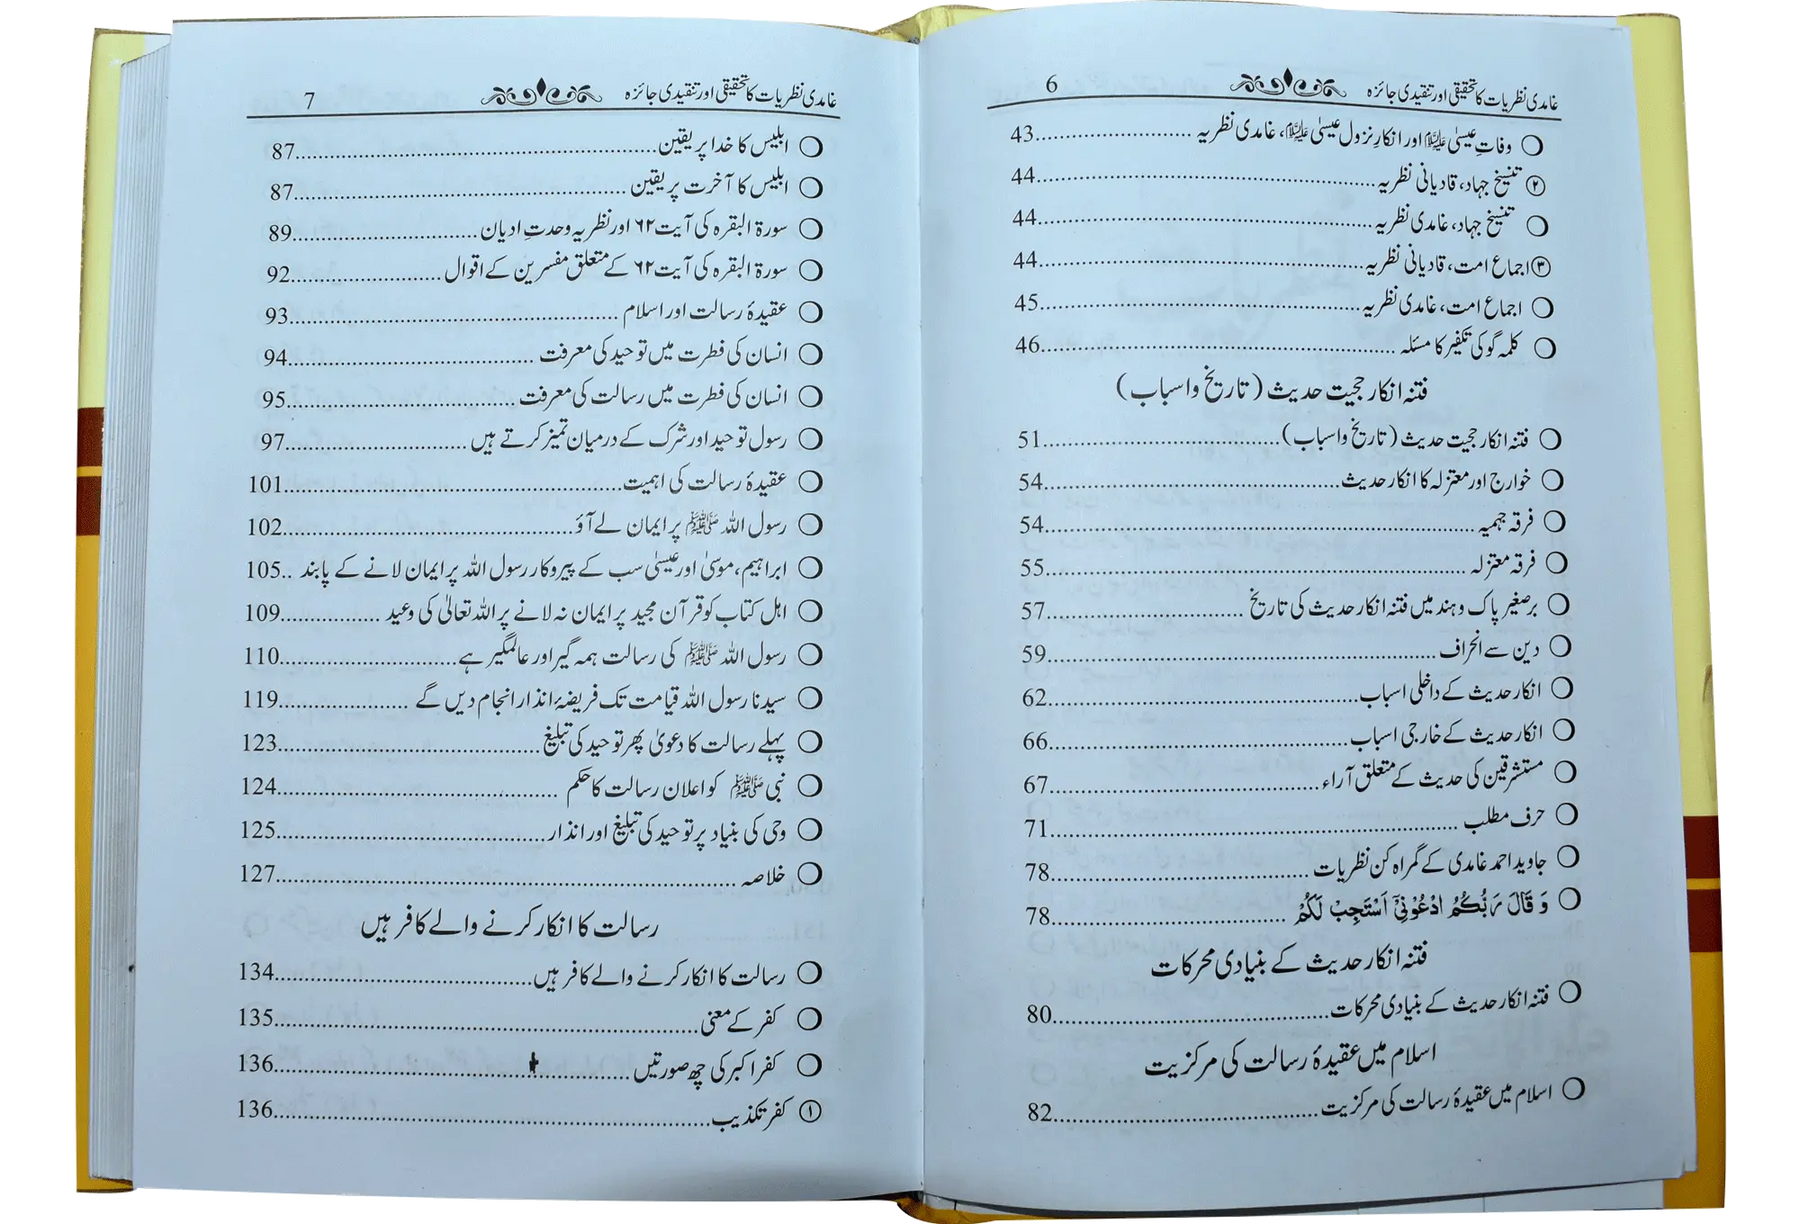 غامدی نظریات کا تحقیقی اور تنقیدی جائزہ 6
وفاتِ عیسیٰ علیہ السلام اور انکارِ نزول عیسیٰ علیہ السلام، غامدی نظریہ 43
② تنسیخ جہاد، قادیانی نظریہ 44
تنسیخ جہاد، غامدی نظریہ 44
③ اجماع امت، قادیانی نظریہ 44
اجماع امت، غامدی نظریہ 45
کلمہ گو کی تکفیر کا مسئلہ 46
فتنہ انکار حجیت حدیث (تاریخ و اسباب)
فتنہ انکار حجیت حدیث (تاریخ و اسباب) 51
خوارج اور معتزلہ کا انکار حدیث 54
فرقہ جہمیہ 54
فرقہ معتزلہ 55
برصغیر پاک و ہند میں فتنہ انکار حدیث کی تاریخ 57
دین سے انحراف 59
انکار حدیث کے داخلی اسباب 62
انکار حدیث کے خارجی اسباب 66
مستشرقین کی حدیث کے متعلق آراء 67
حرف مطلب 71
جاوید احمد غامدی کے گمراہ کن نظریات 78
وَ قَالَ رَبُّكُمُ ادْعُوْنِيْۤ اَسْتَجِبْ لَكُمْ 78
فتنہ انکار حدیث کے بنیادی محرکات
فتنہ انکار حدیث کے بنیادی محرکات 80
اسلام میں عقیدۂ رسالت کی مرکزیت
اسلام میں عقیدۂ رسالت کی مرکزیت 82
غامدی نظریات کا تحقیقی اور تنقیدی جائزہ 7
ابلیس کا خدا پر یقین 87
ابلیس کا آخرت پر یقین 87
سورۃ البقرہ کی آیت ۶۲ اور نظریہ وحدتِ ادیان 89
سورۃ البقرہ کی آیت ۶۲ کے متعلق مفسرین کے اقوال 92
عقیدۂ رسالت اور اسلام 93
انسان کی فطرت میں توحید کی معرفت 94
انسان کی فطرت میں رسالت کی معرفت 95
رسول توحید اور شرک کے درمیان تمیز کرتے ہیں 97
عقیدۂ رسالت کی اہمیت 101
رسول اللہ ﷺ پر ایمان لے آؤ 102
ابراہیم، موسیٰ اور عیسیٰ سب کے پیروکار رسول اللہ پر ایمان لانے کے پابند 105
اہل کتاب کو قرآن مجید پر ایمان نہ لانے پر اللہ تعالیٰ کی وعید 109
رسول اللہ ﷺ کی رسالت ہمہ گیر اور عالمگیر ہے 110
سیدنا رسول اللہ قیامت تک فریضۂ انذار انجام دیں گے 119
پہلے رسالت کا دعویٰ پھر توحید کی تبلیغ 123
نبی ﷺ کو اعلان رسالت کا حکم 124
وحی کی بنیاد پر توحید کی تبلیغ اور انذار 125
خلاصہ 127
رسالت کا انکار کرنے والے کافر ہیں
رسالت کا انکار کرنے والے کافر ہیں 134
کفر کے معنی 135
کفر اکبر کی چھ صورتیں 136
① کفر تکذیب 136